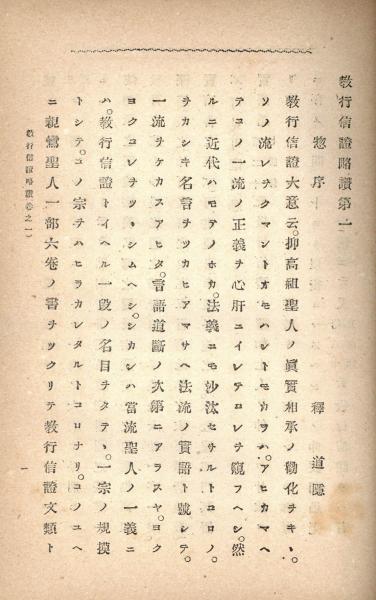 教行信證略讃第一
惣序　釋道隱
教行信證大意云。抑高祖聖人ノ眞實相承ノ勸化チキヽ。
ソノ流レチクマントオモハントモカラハ。アヒカマヘ
テコノ一流ノ正義チ心肝ニイレテコレチ窺フヘシ。然
ルニ近代ハモテノホカ。法義ニモ沙汰セサルトコロノ。
チカシキ名言チツカヒアマサヘ法流ノ實語ト號シテ。
一流チケカスアヒタ。言語道斷ノ次第ニアラスヤ。ヨク
ヨクコレチツヽシムヘシ。シカレハ當流聖人ノ一義ニ
ハ。教行信證トイヘル一段ノ名目チタテヽ。一宗ノ規摸
トシテ。コノ宗チハヒラカレタルトコロナリ。コノユヘ
ニ親鸞聖人一部六卷ノ書チツクリテ教行信證文類ト
教行信證略讃卷之一
一